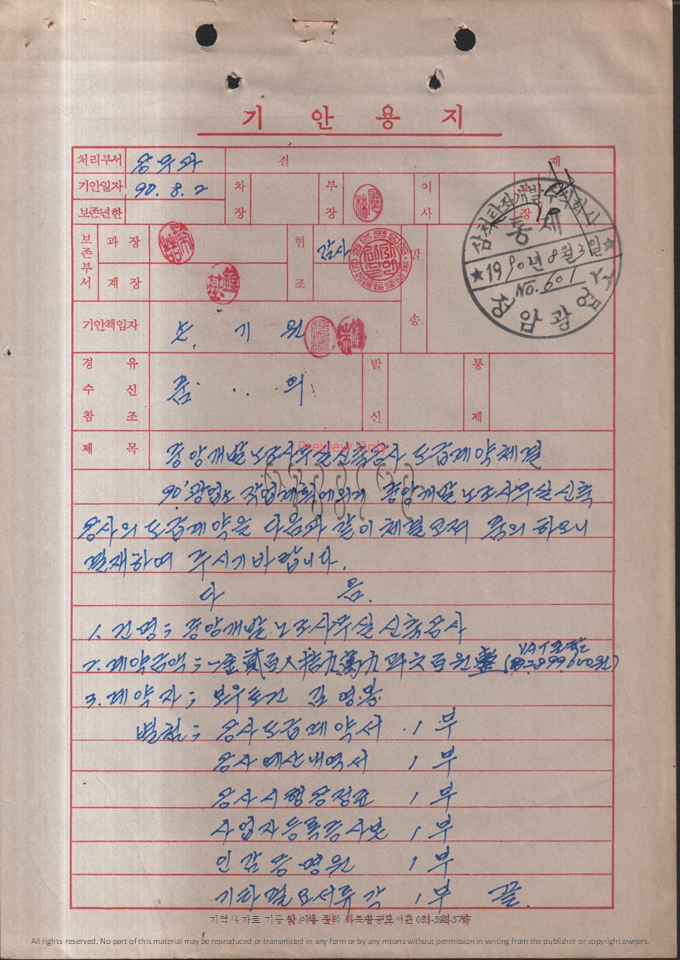 기안용지
처리부서 광무과 결 재
기안일자 90. 8. 2 차장 부장 이사 소장
보존년한
보존부서 과장 협조 감사 발송
계장
삼척탄좌개발주식회사
통제
★1990년 8월 3일★
No. 601
정암광업소
기안책임자 손기원
경유 수신 참조 품의 발신 통제
제목 중앙개발 노조사무실 신축공사 도급계약체결
Preview Only
90'광업소 작업계획에 의거 중앙개발 노조사무실 신축
공사의 도급계약을 다음과 같이 체결코져 품의 하오니
결재하여 주시기 바랍니다.
다 음.
1. 건명; 중앙개발 노조사무실 신축공사
2. 계약금액; 一金貳百八拾九萬九阡六百원整 (₩2,899,600원) VAT포함
3. 계약자; 보우토건 김영봉
별첨; 공사도급계약서 1부
공사예산내역서 1부
공사시행공정표 1부
사업자등록증사본 1부
인감증명원 1부
기타필요서류 각 1부 끝.
All rights reserved. No part of this material may be reproduced or transmitted in any form or by any means without permission in writing from the publisher or copyright owners.